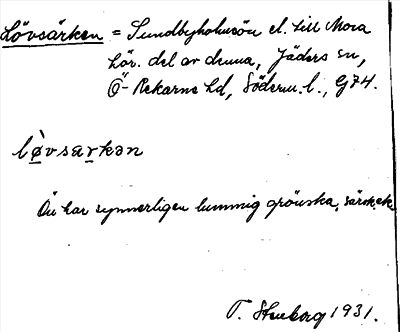 Lövsärken = Sundbyholmsön el. till Mora
hör. del av denna, Jäders sn,
Ö-Rekarne hd, Söderm. l., G74.
lø̀vsærkən
Ön har synnerligen lummig grönska, särsk. ek
T. Stenborg 1931.